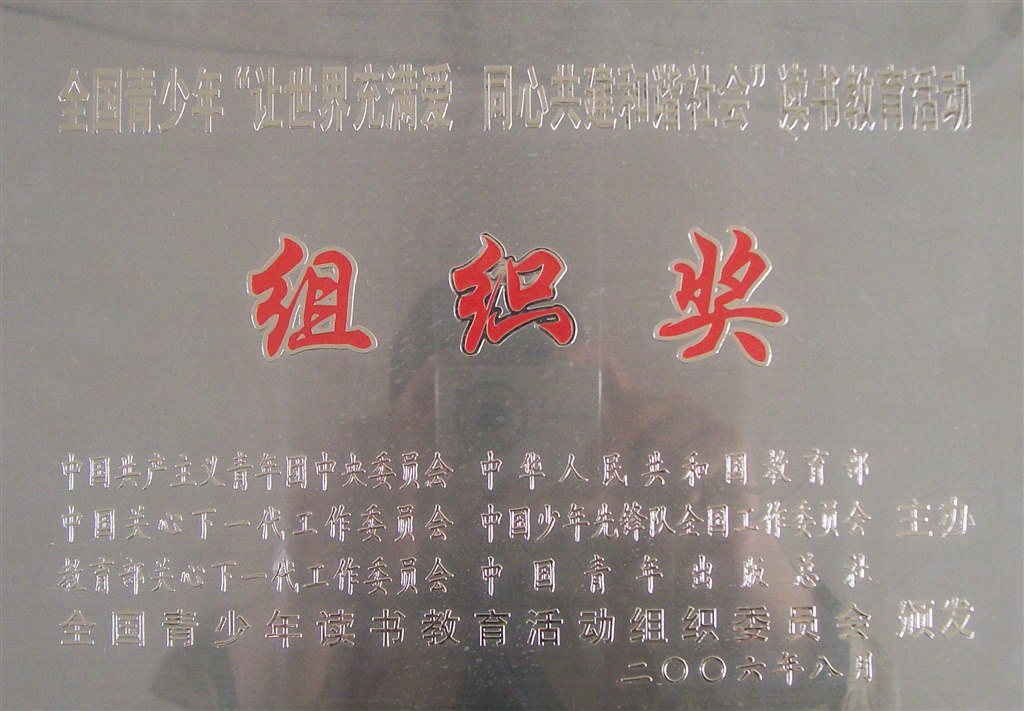 全国青少年“让世界充满爱 同心共建和谐社会”读书教育活动
组织奖
中国共产主义青年团中央委员会 中华人民共和国教育部
中国关心下一代工作委员会 中国少年先锋队全国工作委员会 主办
教育部关心下一代工作委员会 中国青年出版总社
全国青少年读书教育活动组织委员会 颁发
二〇〇六年八月